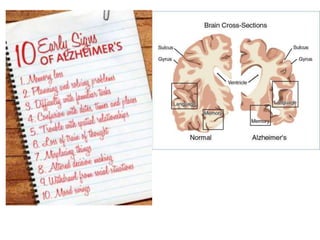 10 Early Signs
OF ALZHEIMER'S
1. Memory loss
2. Planning and solving problems
3. Difficulty with familiar tasks
4. Confusion with dates, times and places
5. Trouble with spatial relationships
6. Loss of train of thought
7. Misplacing things
8. Altered decision making
9. Withdrawal from social situations
10. Mood swings
Brain Cross-Sections
Sulcus
Gyrus
Sulcus
Gyrus
Ventricle
Language
Language
Memory
Memory
Normal
Alzheimer's